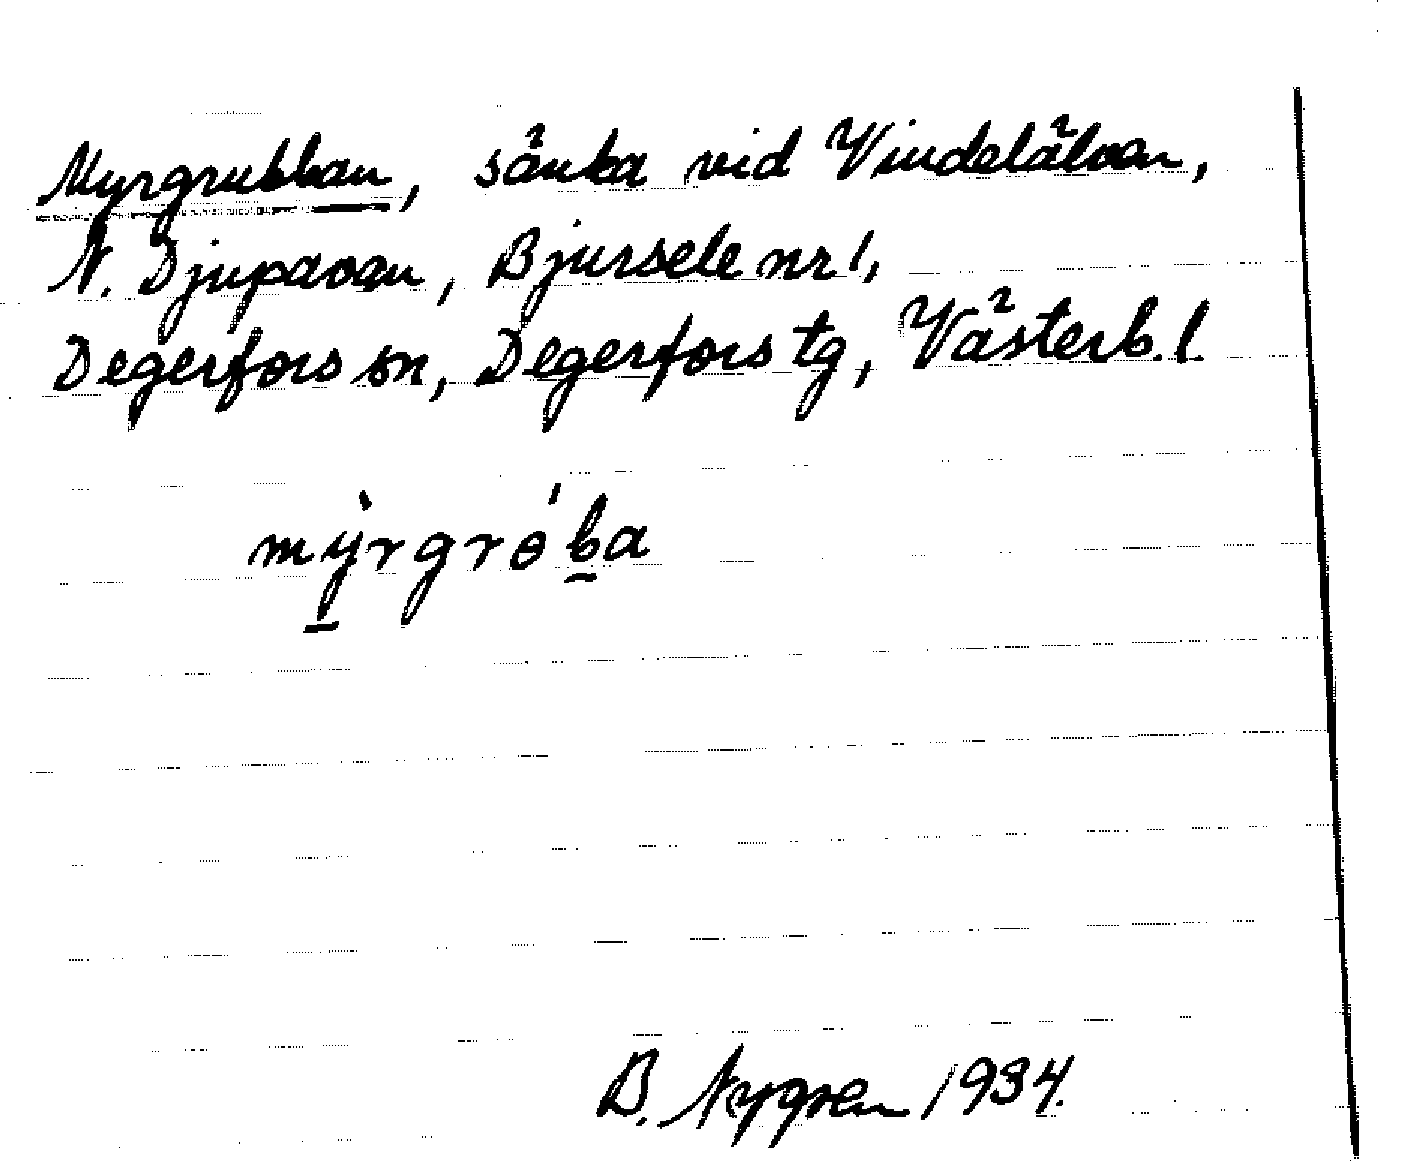 Myrgrubban, sänka vid Vindelälven,
N. Djupåvan, Bjursele nr 1,
Degerfors sn, Degerfors tg, Västerb. l.
my̱rgrób̠a
B. Nygren 1934.